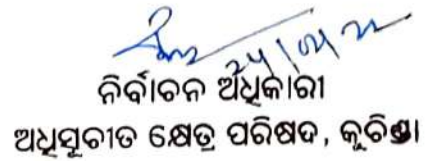 ନିର୍ବାଚନ ଅଧିକାରୀ
ଅଧିସୂଚୀତ କ୍ଷେତ୍ର ପରିଷଦ, କୁଚିଣ୍ଡା